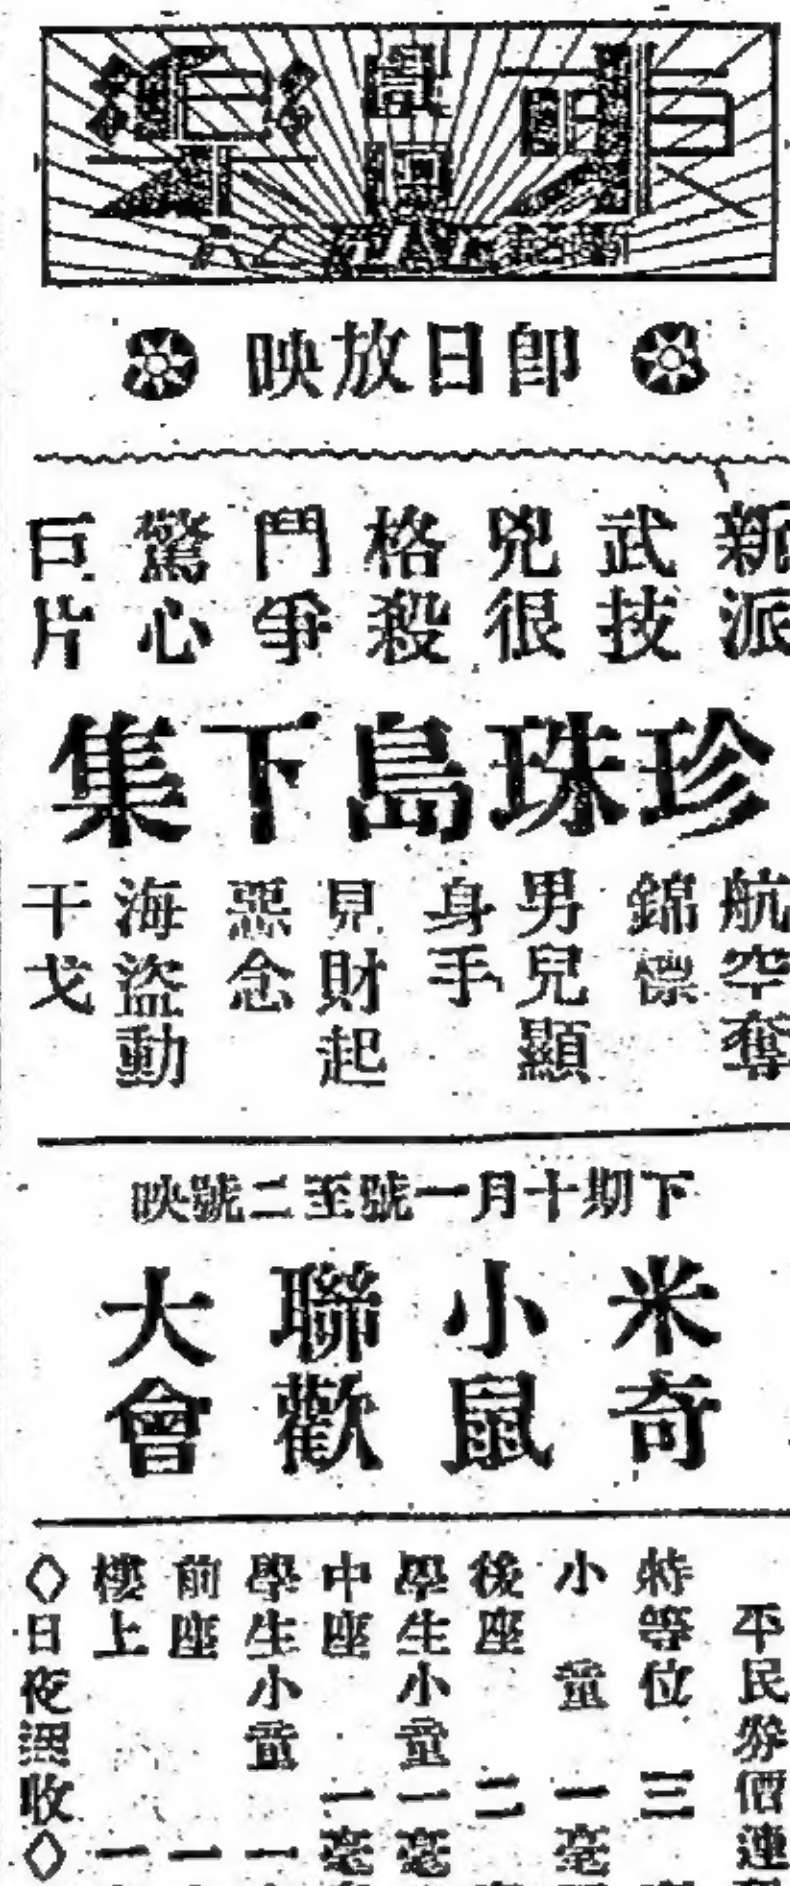 即日放映
新派
武技
兇很
格殺
鬥爭
驚心
巨片
珍珠島下集
航空奪
錦標
男兒顯
身手
見財起
惡念
海盜動
干戈
下期十月一號至二號映
米奇
小鼠
聯歡
大會
平民券價連
特等位 三
小童 一毫
後座 二
學生小童一毫
中座 一毫
學生小童 一
前座 一
樓上 一
◇日夜照收◇